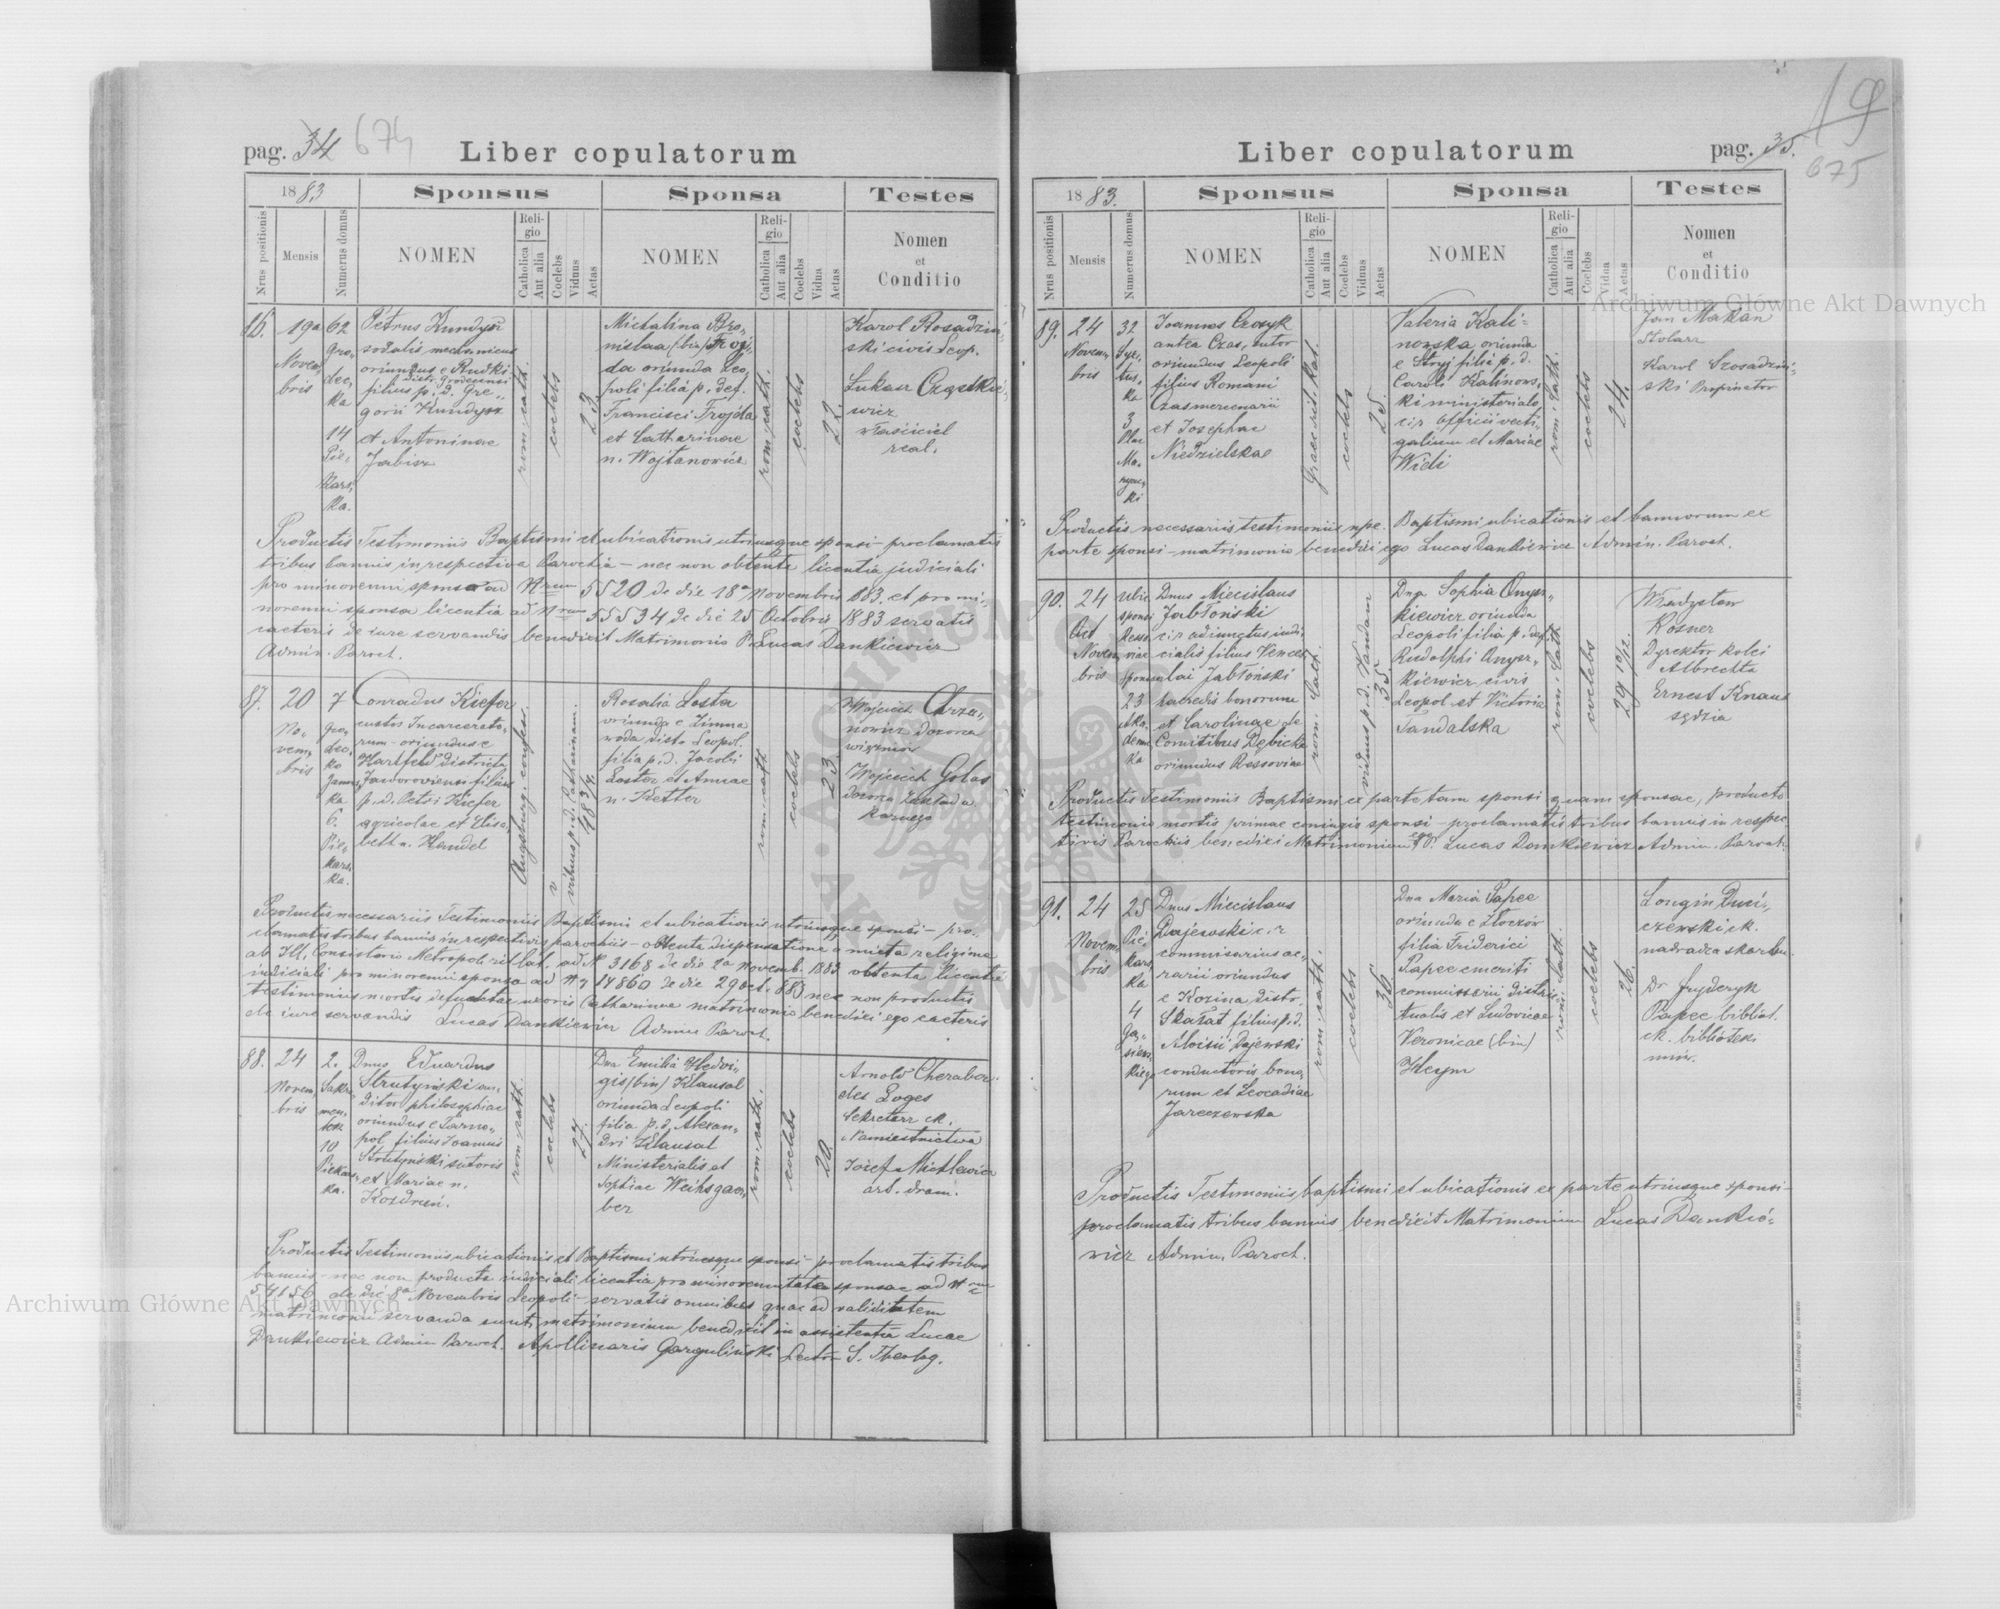 pag. 34 674
Liber copulatorum
1883
Sponsus
Sponsa
Testes
Nrus positionis
Mensis
Numerus domus
NOMEN
Religio
Catholica
Aut alia
Coelebs
Viduus
Aetas
NOMEN
Religio
Catholica
Aut alia
Coelebs
Vidua
Aetas
Nomen
et
Conditio
19a
Novem
bris
62
Gro
dec
ka
14
Pie
kars
ka.
Petrus Kundysz
sodalis mechanicus
oriundus e Rudki
distr. Grodecensi
filius p. d. Gre
gorii Kundysz
et Antoninae
Jabisz
rom. cath.
coelebs
23
Michalina Bro
nislaa (bin) Troj
da oriunda Leo
poli filia p. def.
Francisci Trojda
et Catharinae
n. Wojtanowicz
rom. cath.
coelebs
22.
Karol Rosadziń
ski civis Leop.
Łukasz Cząstkie
wicz
właściciel
real.
Productis Testimoniis Baptismi et ubicationis utriusque sponsi - proclamatis
tribus bannis in respectiva Parochia - nec non obtenta licentia judiciali
pro minorenni sponso ad Nrum 5520 de die 18a Novembris 1883. et pro mi
norenni sponsa licentia ad Nrum 55534 de die 25 Octobris 1883 servatis
caeteris de iure servandis benedixit Matrimonio P. Lucas Dankiewicz
Admin. Paroch.
87.
20
No
vem
bris
7
Gro
dec
ko
Janow
ka
6.
Pie
kars
ka.
Conradus Kiefer
custos Incarcerato
rum - oriundus e
Hartfeld districtu
Jaworoviensi filius
p. d. Petri Kiefer
agricolae et Elisa
beth n. Handel
Augsburg. confes.
viduus p. d. Catharinam.
Rosalia Lester
oriunda e Zimna
woda distr. Leopol.
filia p. d. Jacobi
Lester et Annae
n. Ketter
rom. cath
coelebs
23
Wojciech Chrza
nowicz dozorca
więzniów
Wojciech Golas
dozorca zakładu
karnego
Productis necessariis Testimoniis Baptismi et ubicationis utriusque sponsi - pro
clamatis tribus bannis in respectivis parochiis - obtenta dispensatione a mixta religione
ab Ill. Consistorio Metropol. rit. lat. ad N 3168 de die 2a Novemb. 1883 obtenta licentia
iudiciali pro minorenni sponsa ad N 14860 de die 29 Oct. 883 nec non productis
testimoniis mortis defunctae uxoris Catharinae matrimonio benedixi ego caeteris
de iure servandis Lucas Dankiewicz Admin Paroch.
88.
24
Novem
bris
2.
Sakra
men
tek
10
Piekars
ka.
Dnus Eduardus
Strutyński au
ditor philosophiae
oriundus e Tarno
pol filius Joannis
Strutyński sutoris
et Mariae n.
Kozdruń.
rom. cath.
coelebs
27.
Dna Emilia Hedvi
gis (bin) Klausal
oriunda Leopoli
filia p. d. Alexan
dri Klausal
Ministerialis et
Sophiae Weihsgaer
ber
rom. cath.
coelebs
20
Arnold
des Loges
Sekretarz ck.
Namiestnictwa
Józef Michlewicz
art. dram.
Productis Testimoniis ubicationis et Baptismi utriusque sponsi - proclamatis tribus
bannis - nec non producta iudiciali licentia pro minorennitate sponsae ad Nrum
54156 de die 8a Novembris Leopoli - servatis omnibus quae ad validitatem
matrimonii servanda sunt, matrimonium benedixit in assistentia Lucae
Dankiewicz Admin Paroch. Apollinaris Gargulinski Lector S. Theolog.
19
pag. 35.
675
Liber copulatorum
1883.
Sponsus
Sponsa
Testes
Nrus positionis
Mensis
Numerus domus
NOMEN
Religio
Catholica
Aut alia
Coelebs
Viduus
Aetas
NOMEN
Religio
Catholica
Aut alia
Coelebs
Vidua
Aetas
Nomen
et
Conditio
89.
24
Novem
bris
32
Syx
tus
ka
3
Plac
Ma
ryac
ki
Joannes Czosyk
antea Czas, sutor
oriundus Leopoli
filius Romani
Czas mercenarii
et Josephae
Niedzielskae
Graec. rit. kat.
coelebs
25.
Valeria Kali
nowska oriunda
e Stryj filia p. d.
Caroli Kalinows
ki ministerialis
c. r. officii vecti
galium et Mariae
Widi
rom. cath.
coelebs
24.
Jan Makan
Stolarz
Karol Szosadziń
ski Propinator
Productis necessariis testimoniis npe. Baptismi ubicationis et bannorum ex
parte sponsi - matrimonio benedixi ego Lucas Dankiewicz Admin. Paroch.
90.
24
Novem
bris
Ubic
sponsi
Resso
viae
sponsae
23
Aka
demic
ka
Dnus Miecislaus
Jabłoński
c. r. adiunctus iudi
cialis filius Vences
lai Jabłoński
haeredis bonorum
et Carolinae de
Comitibus Dębicka
oriundus Ressoviae
rom. cath.
viduus p. d. Vandam
35
Dna Sophia Onysz
kiewicz oriunda
Leopoli filia p. def.
Rudolphi Onysz
kiewicz civis
Leopol et Victoria
Tandalska
rom. cath
coelebs
29
Władysław
Rosner
Dyrektor kolei
Albrechta
Ernest Knaus
sędzia
Productis Testimoniis Baptismi ex parte tam sponsi quam sponsae, producto
testimonio mortis primae coniugis sponsi - proclamatis tribus bannis in respec
tivis Parochiis benedixi Matrimonium ego P. Lucas Dankiewicz Admin. Paroch.
91.
24
Novem
bris
25
Pie
kars
ka
4
Ga
sien
kiego
Dnus Miecislaus
Dajewski c. r.
commissarius ae
rarii oriundus
e Kozina distr.
Skałat filius p. d.
Aloisii Dajewski
conductoris bono
rum et Leocadiae
Jarczewska
rom. cath.
coelebs
36
Dna Maria Papee
oriunda e Złoczów
filia Friderici
Papee emeriti
commissarii distric
tualis et Ludovicae
Veronicae (bin)
Heym
rom. cath.
coelebs
26.
Longin Duni
czewski ck.
nadradca skarbu
Dr Fryderyk
Papee bibliot.
ck. biblioteki
uniw.
Productis Testimoniis baptismi et ubicationis ex parte utriusque sponsi
proclamatis tribus bannis benedixit Matrimonium Lucas Dankie
wicz Admin. Paroch.
Z drukarni Ludowej we Lwowie
Archiwum Główne Akt Dawnych
Archiwum Główne Akt Dawnych